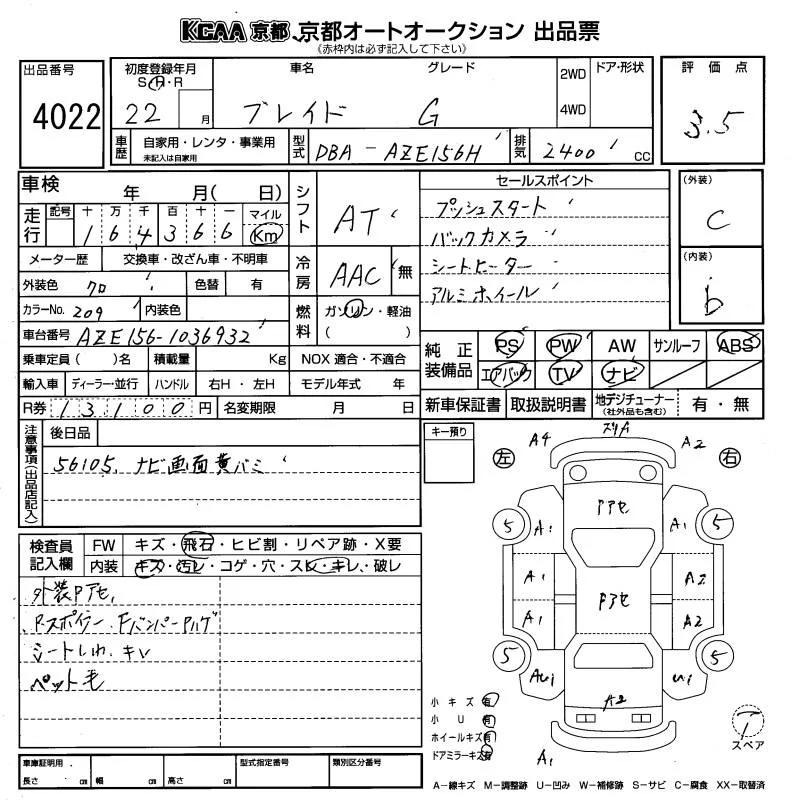 KCAA 京都 京都オートオークション 出品票
(赤枠内は必ず記入して下さい)
出品番号
4022
初度登録年月
S・H・R
22 月
車名 グレード
ブレイド G
2WD
4WD
ドア・形状
評価点
3.5
車歴
自家用・レンタ・事業用
未記入は自家用
型式
DBA-AZE156H
排気
2400 CC
車検 年 月( 日)
走行
記号 十 万 千 百 十 一 マイル
1 6 4 3 6 6 Km
メーター歴 交換車・改ざん車・不明車
外装色 クロ 色替 有
カラーNo. 209 内装色
車台番号 AZE156-1036932
乗車定員 ( )名 積載量 Kg NOX 適合・不適合
輸入車 ディーラー・並行 ハンドル 右H・左H モデル年式 年
R券 13100円 名変期限 月 日
シフト
AT
冷房
AAC 無
燃料
ガソリン・軽油
( )
セールスポイント
プッシュスタート
バックカメラ
シートヒーター
アルミホイール
(外装)
C
(内装)
b
純正装備品
PS PW AW サンルーフ ABS
エアバック TV ナビ
新車保証書 取扱説明書 地デジチューナー (社外品も含む) 有・無
注意事項(出品店記入)
後日品
56105. ナビ画面黄バミ
キー預り
検査員記入欄
FW キズ・飛石・ヒビ割・リペア跡・X要
内装 キズ・汚レ・コゲ・穴・スレ・キレ・破レ
外装Pアセ,
シートしわ. キレ
ペット毛
左
右
A4
A2
Pアセ
5
A1
A1
5
A1
A2
Pアセ
A1
A2
5
AU1
U1
5
A2
A1
小キズ 有
小U 有
ホイールキズ 有
ドアミラーキズ 有
T
スペア
車庫証明用
長さ cm 幅 cm 高さ cm
型式指定番号
類別区分番号
A-線キズ M-調整跡 U-凹み W-補修跡 S-サビ C-腐食 XX-取替済